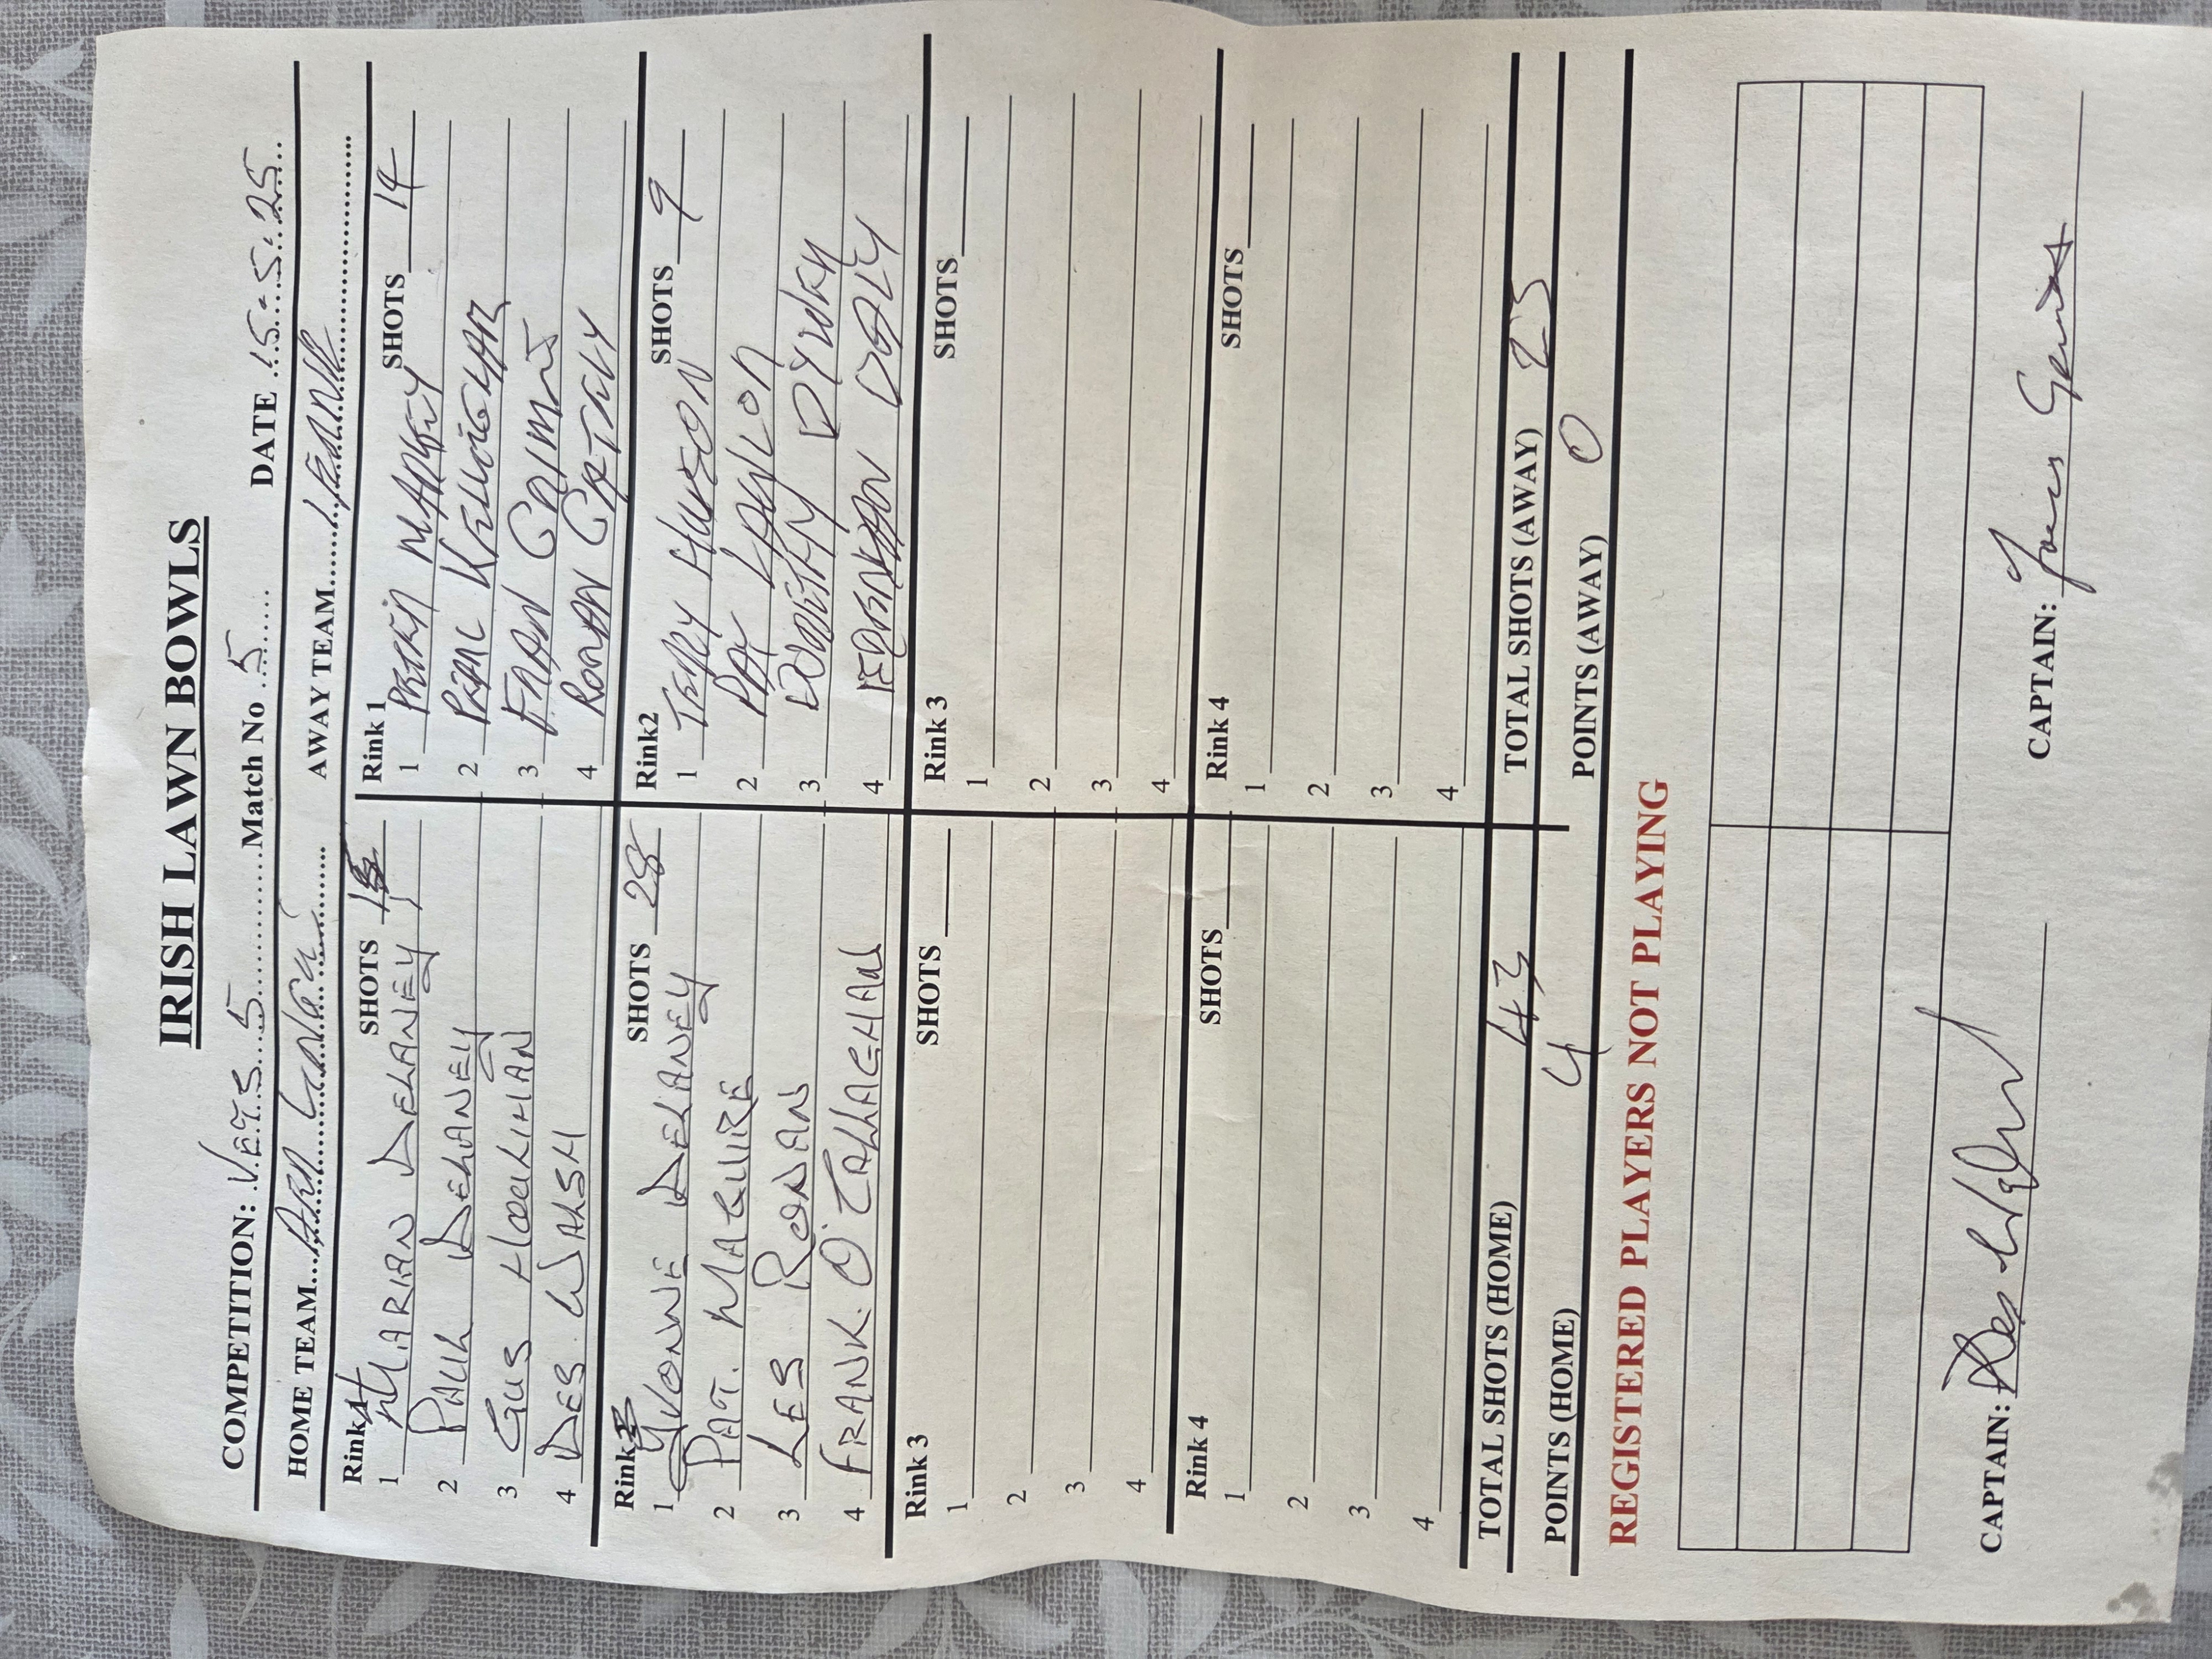 IRISH LAWN BOWLS
COMPETITION: V.E.T.S. 5 Match No 5 DATE 15.5.25
HOME TEAM AWAY TEAM
Rink 1 SHOTS
1 MARIAN DELANEY
2 PAUL DELANEY
3 GUS HOOLIHAN
4 DES WALSH
Rink 1 SHOTS 14
1 MARKEY
2 KELLIGHAR
3 FRAN
4 RONAN
Rink SHOTS 28
1 YVONNE DELANEY
2 PAT. MAGUIRE
3 LES RONAN
4 FRANK. O'CALLAGHAN
Rink2 SHOTS 9
1 TERRY HUDSON
2 PAT HANLON
3
4 DALY
Rink 3 SHOTS
1
2
3
4
Rink 3 SHOTS
1
2
3
4
Rink 4 SHOTS
1
2
3
4
Rink 4 SHOTS
1
2
3
4
TOTAL SHOTS (HOME) 43 TOTAL SHOTS (AWAY) 23
POINTS (HOME) 4 POINTS (AWAY) 0
REGISTERED PLAYERS NOT PLAYING
CAPTAIN: CAPTAIN: